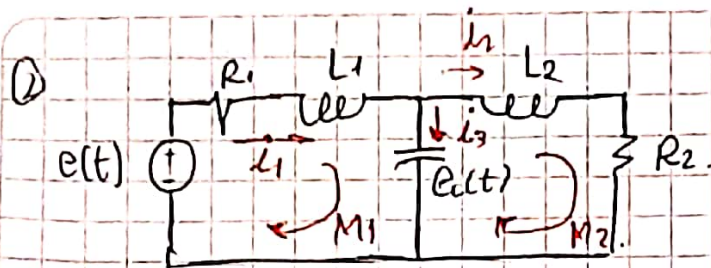 ①
i₂
R₁
L1
L2
e(t)
i₁
i₃
ec(t)
R2.
M1
M2